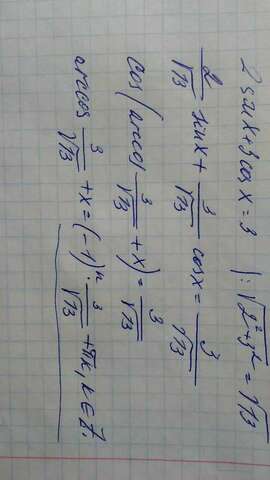 2 sin x + 3 cos x = 3 | : √(2² + 3²) = √13
2/√13 sin x + 3/√13 cos x = 3/√13
cos(arccos 3/√13 + x) = 3/√13
arccos 3/√13 + x = (-1)ⁿ · 3/√13 + πk, k ∈ Z.